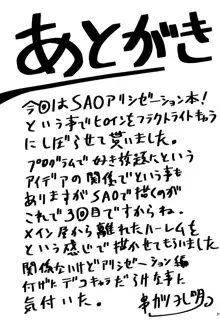 あとがき
今回はSAOアリシゼーション本!
という事でヒロインをフラクトライトキャラ
にしぼらせて貰いました。
プログラムで好き放題という
アイデアの関係でという事も
ありますがSAOで描くのが
これで3回目ですからね。
メイン居から離れたハーレムを
という感じで描かせてもらいました
関係ないけどアリシゼーション編
何げにデコキャラだらけな事に
気付いた。